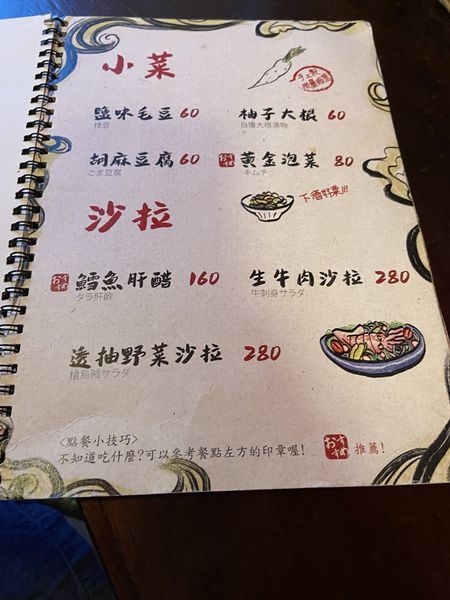 小菜
鹽味毛豆 60
枝豆
柚子大根 60
自慢大根漬物
胡麻豆腐 60
ごま豆腐
おすすめ 黃金泡菜 80
キムチ
下酒好菜!!!
沙拉
おすすめ 鱈魚肝醋 160
タラ肝酢
生牛肉沙拉 280
牛刺身サラダ
透抽野菜沙拉 280
槍烏賊サラダ
<點餐小技巧>
不知道吃什麼?可以參考餐點左方的印章喔!
おすすめ 推薦!